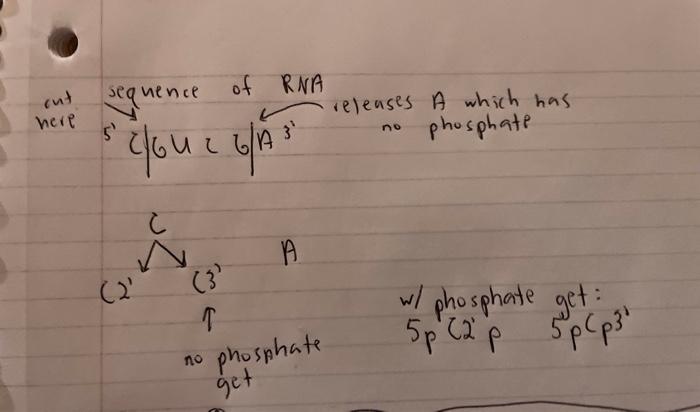 sequence of RNA
cut here
releases A which has
no phosphate
5' C|GU C G|A 3'
C
C2' C3' A
no phosphate
get
w/ phosphate get:
5pC2'p 5pCp3'